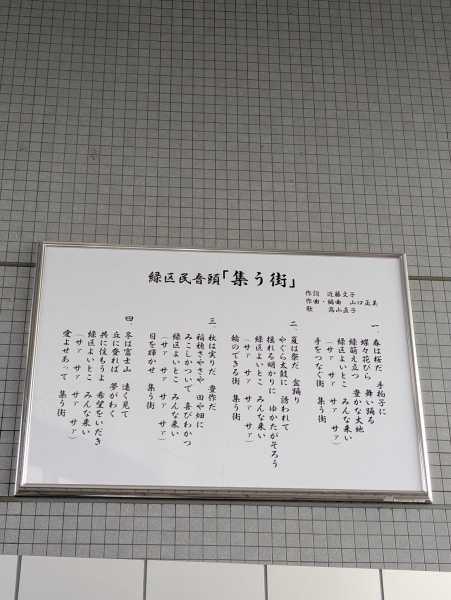 緑区民音頭「集う街」
作詞　近藤文子
作曲・編曲　山口正美
歌　高山直子
一、春は桜だ　手拍子に
蝶々花びら　舞い踊る
緑萌え立つ　豊かな大地
緑区よいとこ　みんな来い
（サァ　サァ　サァ　サァ）
手をつなぐ　集う街
二、夏は祭だ　盆踊り
やぐら太鼓に　誘われて
揺れる明かりに　ゆかたがそろう
緑区よいとこ　みんな来い
（サァ　サァ　サァ　サァ）
輪のできる街　集う街
三、秋は実りだ　豊作だ
稲穂さやさや　田や畑に
みこしかついで　喜びわかつ
緑区よいとこ　みんな来い
（サァ　サァ　サァ　サァ）
目を輝かせ　集う街
四、冬は富士山　遠く見て
丘に登れば　夢がわく
共に住もうよ　希望をいだき
緑区よいとこ　みんな来い
（サァ　サァ　サァ　サァ）
愛よせあって　集う街